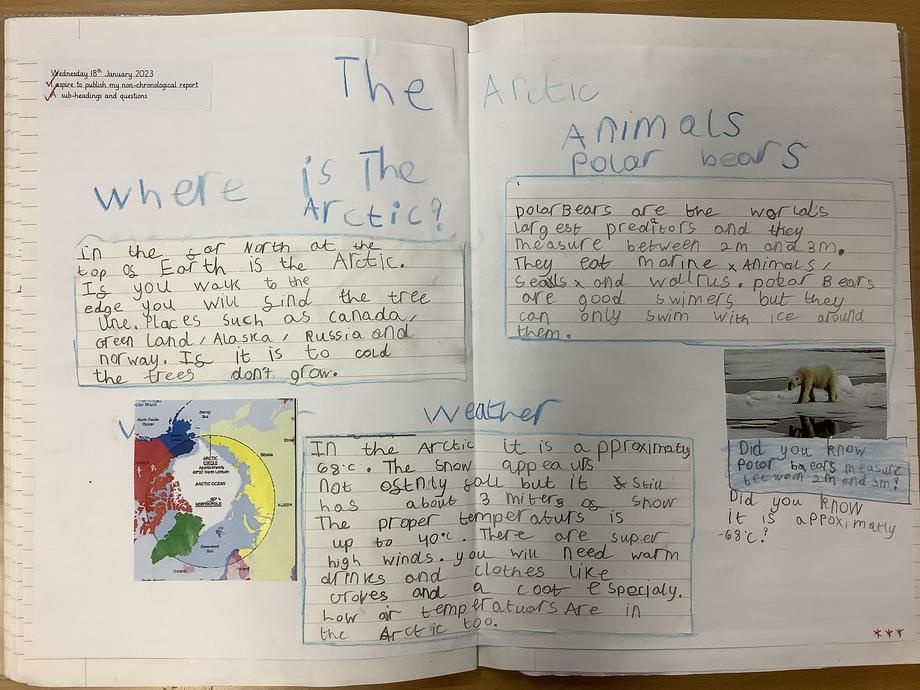 Wednesday 18th January 2023
I aspire to publish my non-chronological report
A sub-headings and questions
The Arctic
where is The
Arctic?
In the far North at the
top of Earth is the Arctic.
If you walk to the
edge you will find the tree
line. Places such as canada,
Green land, Alaska, Russia and
norway. If it is to cold
the trees don't grow.
Animals
Polar bears
polar Bears are the world's
largest preditors and they
a
measure between 2m and 3m.
They eat marine x Animals,
sealls x and wallrus. polar Bears
are good swimers but they
can only swim with ice around
them.
Weather
In the Arctic it is approximaty
68°c. The snow appears
not oftnity fall but it still
has about 3 miters of snow
The proper temperaturs is
up to 40°c. There are super
high winds. you will need warm
drinks and clothes like
Gloves and a coat especialy.
how air temperatuors Are in
the Arctic too.
Did you know
Polar baears measure
between 2m and 3m?
Did you know
it is approximatly
-68°c?
North Pacific
Ocean
Bering
Sea
ARCTIC
CIRCLE
ARCTIC OCEAN
NORTH POLE
Siberia
RUSSIA
Greenland
Sea